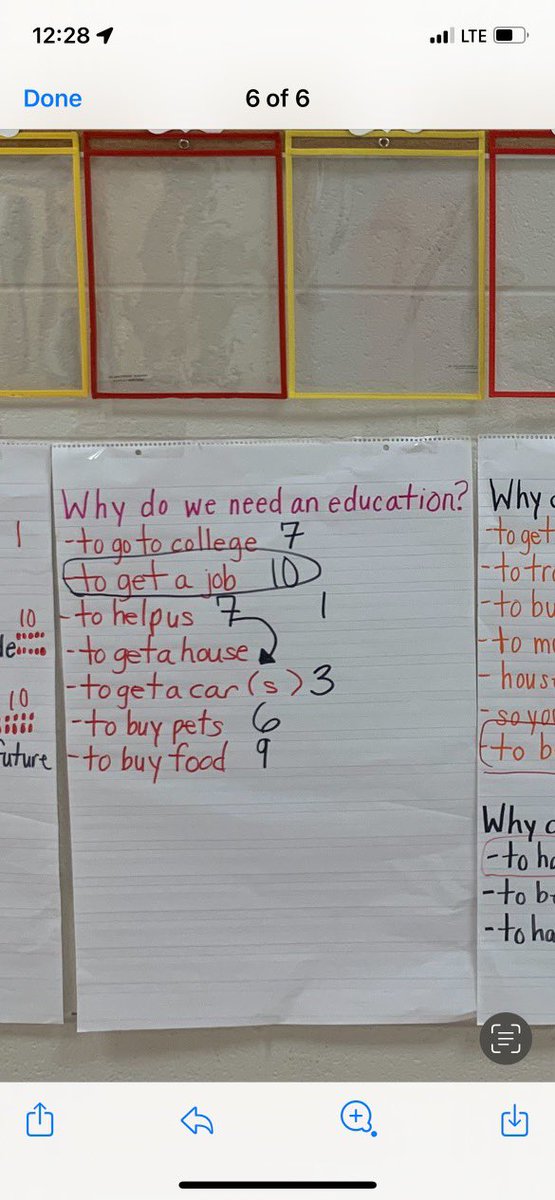 12:28
LTE
Done
6 of 6
Why do we need an education?
-to go to college 7
to get a job 10
-to help us 7 1
-to get a house
-to get a car(s) 3
-to buy pets 6
-to buy food 9
1
10
10
future
Why
-to get
-to
-to
-to
-
-so
-to
Why
-to
-to
-to